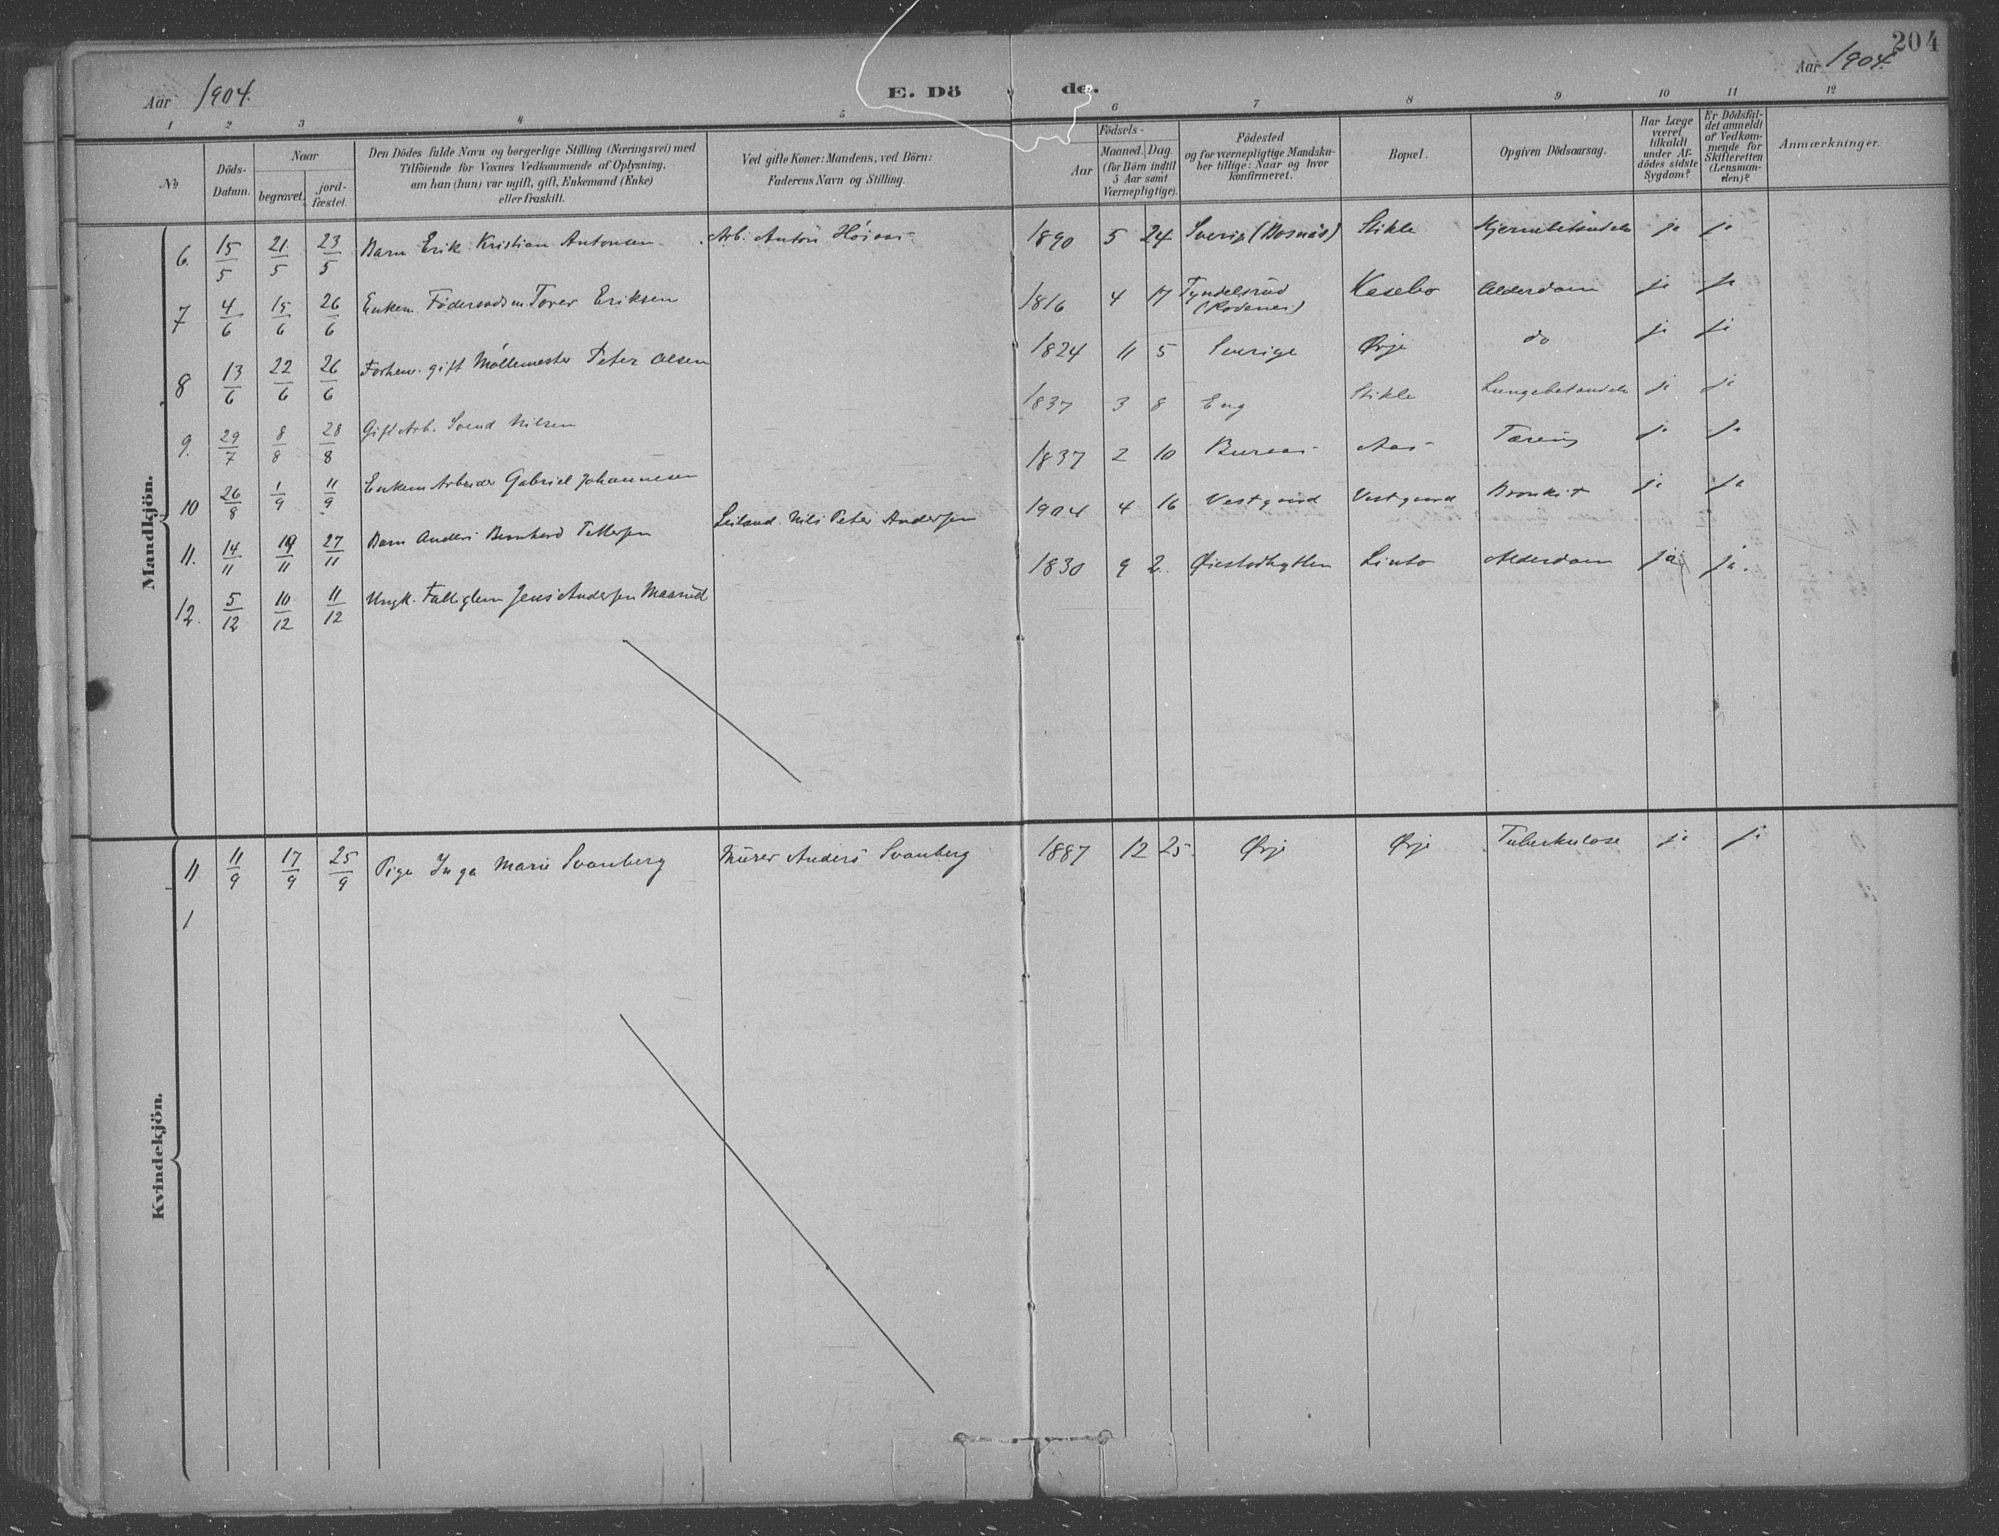 204
Aar 1904.
E. Dö de.
Aar 1904.
1 2 3 4 5 6 7 8 9 10 11 12
No
Döds-Datum.
Naar
begravet.
jord-fæstet.
Den Dödes fulde Navn og borgerlige Stilling (Næringsvei) med
Tilföiende for Voxnes Vedkommende af Oplysning,
om han (hun) var ugift, gift, Enkemand (Enke)
eller fraskilt.
Ved gifte Koner: Mandens, ved Börn:
Faderens Navn og Stilling.
Födsels-
Aar
Maaned. Dag.
(for Börn indtil
5 Aar samt
Værnepligtige).
Födested
og for værnepligtige Mandska-
ber tillige: Naar og hvor
konfirmeret.
Bopæl.
Opgiven Dödsaarsag.
Har Læge
været
tilkaldt
under Af-
dödes sidste
Sygdom?
Er Dödsfal-
det anmeldt
af Vedkom-
mende for
Skifteretten
(Lensman-
den)?
Anmærkninger.
Mandkjön.
6. 15/5 21/5 23/5 Barn Erik Kristian Antonsen Arb. Anton 1890 5 24 Stikle ja ja
7 4/6 15/6 26/6 Enkem. Föderaadsm Tover Eriksen 1816 4 17 Tyndelsrud Kasebo Alderdom ja ja
8 13/6 22/6 26/6 Forhenv. gift Möllemester Peter Olsen 1824 11 5 Sverige Ørje do ja ja
9. 29/7 8/8 28/8 Gift Arb. Svend Nilsen 1837 3 8 Eng Stikle Lungebetændelse ja ja
10 26/8 1/9 11/9 Enkem Arbeider Gabriel Johannesen 1837 2 10 Aas Tæring ja ja
11. 14/11 19/11 27/11 Barn Anders Bernhard Pettersen Leiland. Nils Peter Andersen 1904 4 16 Vestgaard Vestgaard Bronkit ja ja
12. 5/12 10/12 11/12 Ungk. Fattiglem Jens Andersen Maarud 1830 9 2. Linto Alderdom ja ja.
Kvindekjön.
11 11/9 17/9 25/9 Pige Inga Marie Svanberg Murer Anders Svanberg 1887 12 25. Ørje Ørje Tuberkulose ja ja
1